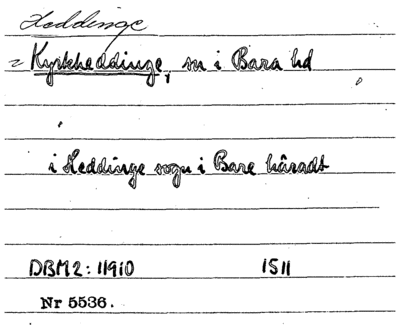 Heddinge
= Kyrkheddinge, sn i Bara hd
i Heddinge sogn i Bare häradt
DBM2: 11910 1511
Nr 5536.